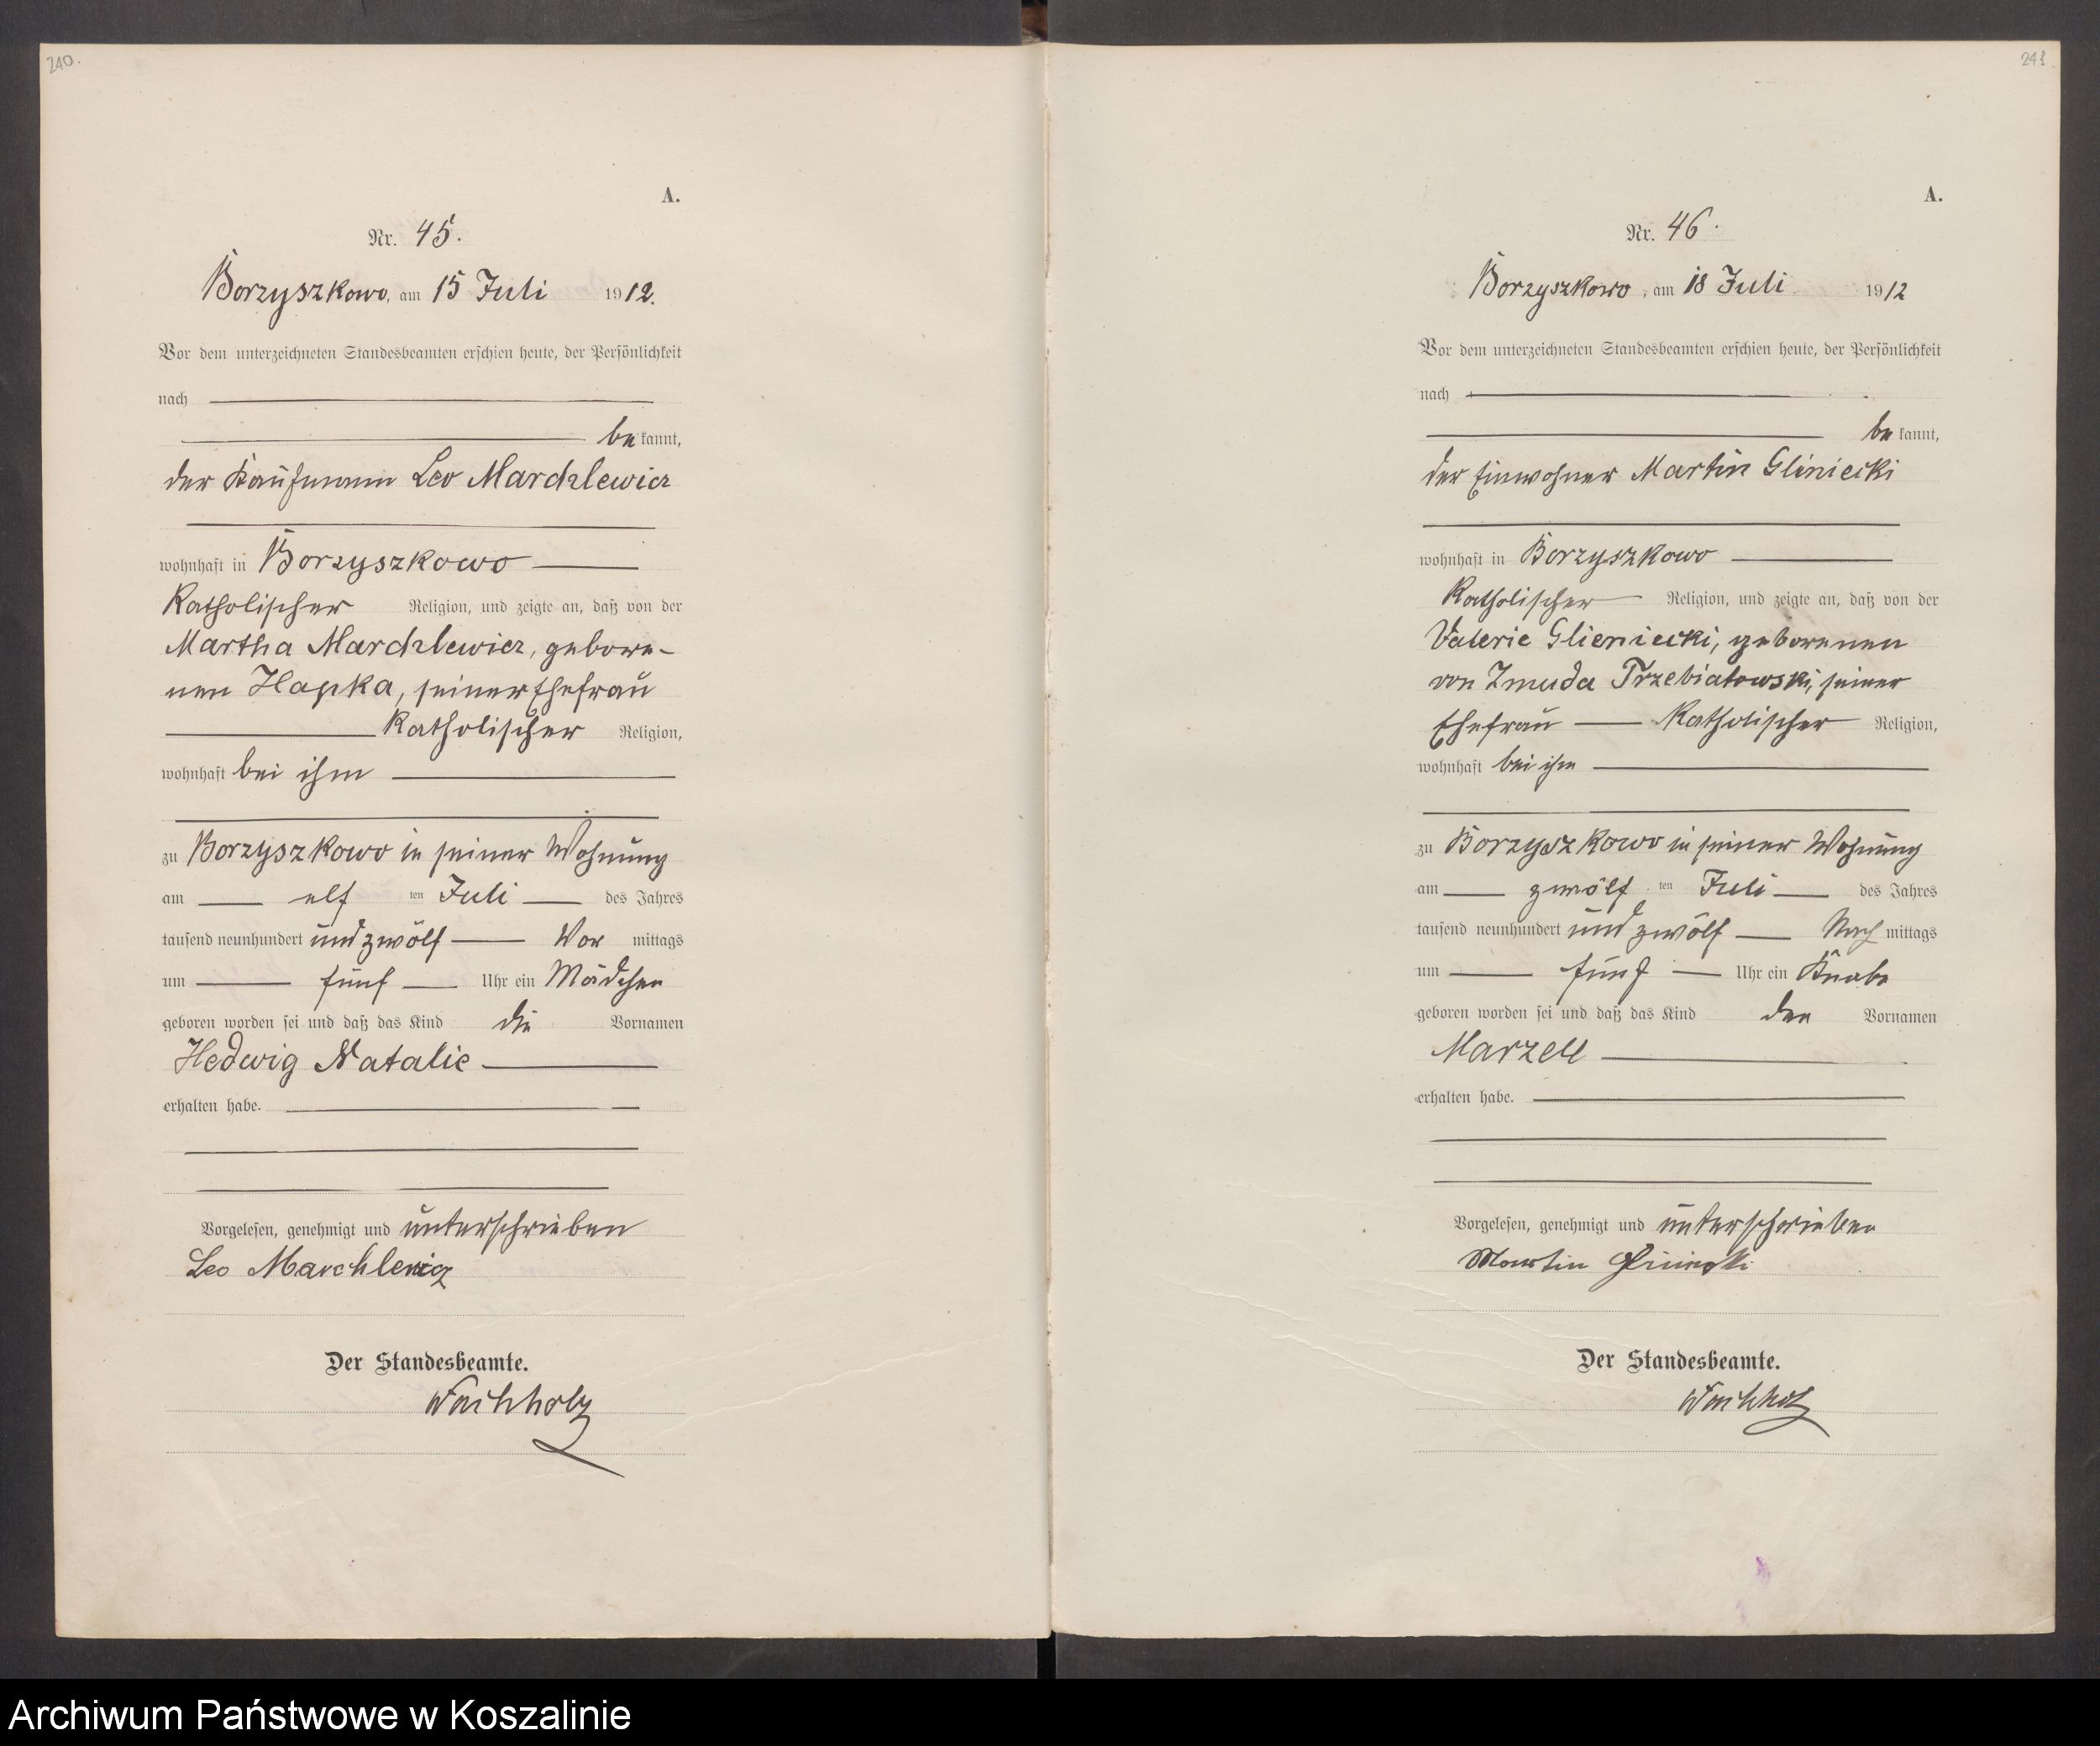 240.
A.
Nr. 45.
Borzyszkowo, am 15 Juli 1912.
Vor dem unterzeichneten Standesbeamten erschien heute, der Persönlichkeit
nach
bekannt,
der Kaufmann Leo Marchlewicz
wohnhaft in Borzyszkowo
Katholischer Religion, und zeigte an, daß von der
Martha Marchlewicz, gebore-
nen Hapka, seiner Ehefrau
Katholischer Religion,
wohnhaft bei ihm
zu Borzyszkowo in seiner Wohnung
am elf ten Juli des Jahres
tausend neunhundert und zwölf Vor mittags
um fünf Uhr ein Mädchen
geboren worden sei und daß das Kind die Vornamen
Hedwig Natalie
erhalten habe.
Vorgelesen, genehmigt und unterschrieben
Leo Marchlewicz
Der Standesbeamte.
A.
Nr. 46.
Borzyszkowo, am 18 Juli 1912
Vor dem unterzeichneten Standesbeamten erschien heute, der Persönlichkeit
nach
bekannt,
der Einwohner Martin Gliniecki
wohnhaft in Borzyszkowo
Katholischer Religion, und zeigte an, daß von der
Valerie Glieniecki, geborenen
von Zmuda Trzebiatowski, seiner
Ehefrau Katholischer Religion,
wohnhaft bei ihm
zu Borzyszkowo in seiner Wohnung
am zwölf ten Juli des Jahres
tausend neunhundert und zwölf Nach mittags
um fünf Uhr ein Knabe
geboren worden sei und daß das Kind den Vornamen
Marzell
erhalten habe.
Vorgelesen, genehmigt und unterschrieben
Martin
Der Standesbeamte.
Archiwum Państwowe w Koszalinie